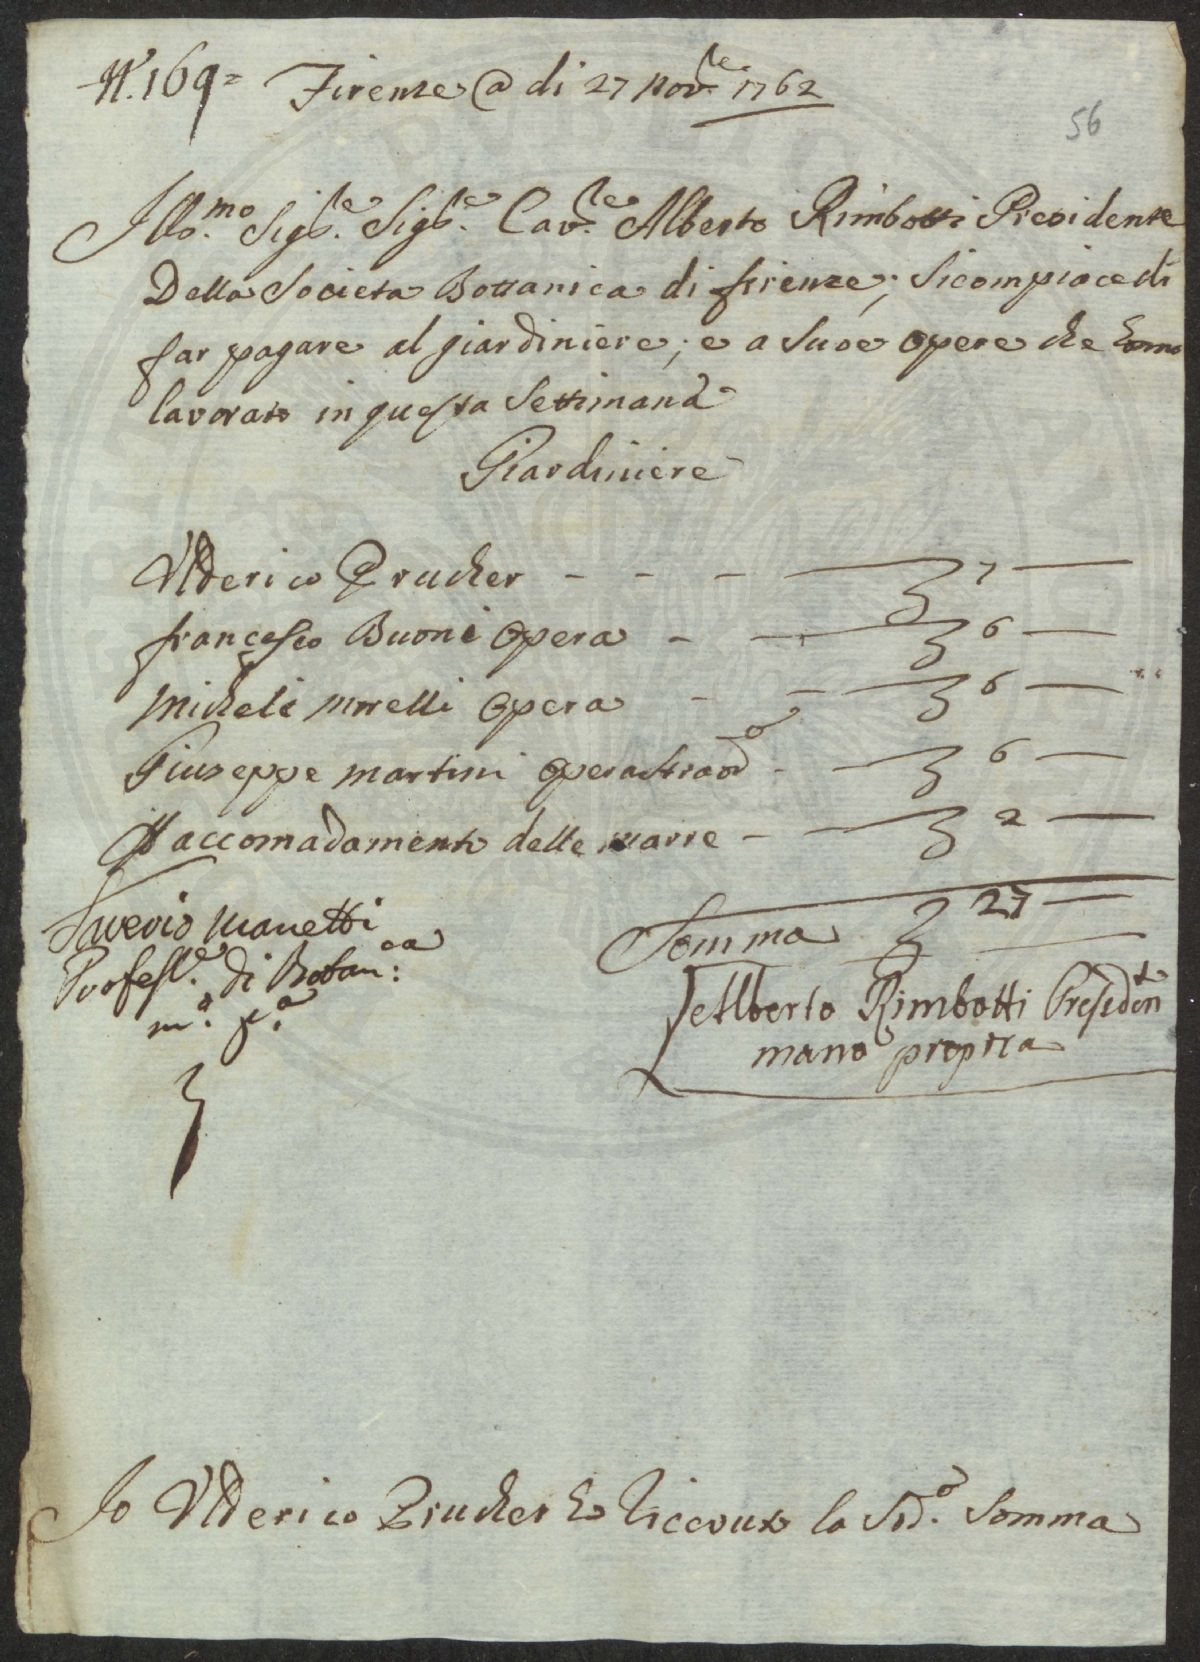 N. 169= Firenze @ di 27 Nov.re 1762
56
Illo.mo Sig.re Sig.re Cav.re Alberto Rimbotti Presidente
Della Societa Bottanica di firenze; Si compiace di
far pagare al giardiniere; e a Sue opere che
lavorato in questa Settimana
Giardiniere
Ulderico Prucher - - - 7
francesco Buoni Opera - 6
Michele Morelli Opera - - 6
Giuseppe Martini Opera straord.a - 6
accomadamento delle marre - 2
Somma 27
Saverio Manetti
Profess.e di Botan:ca
m.o p.a
Alberto Rimbotti Presiden.te
mano propria
Io Ulderico Prucher O Riceuto la Sud.a Somma